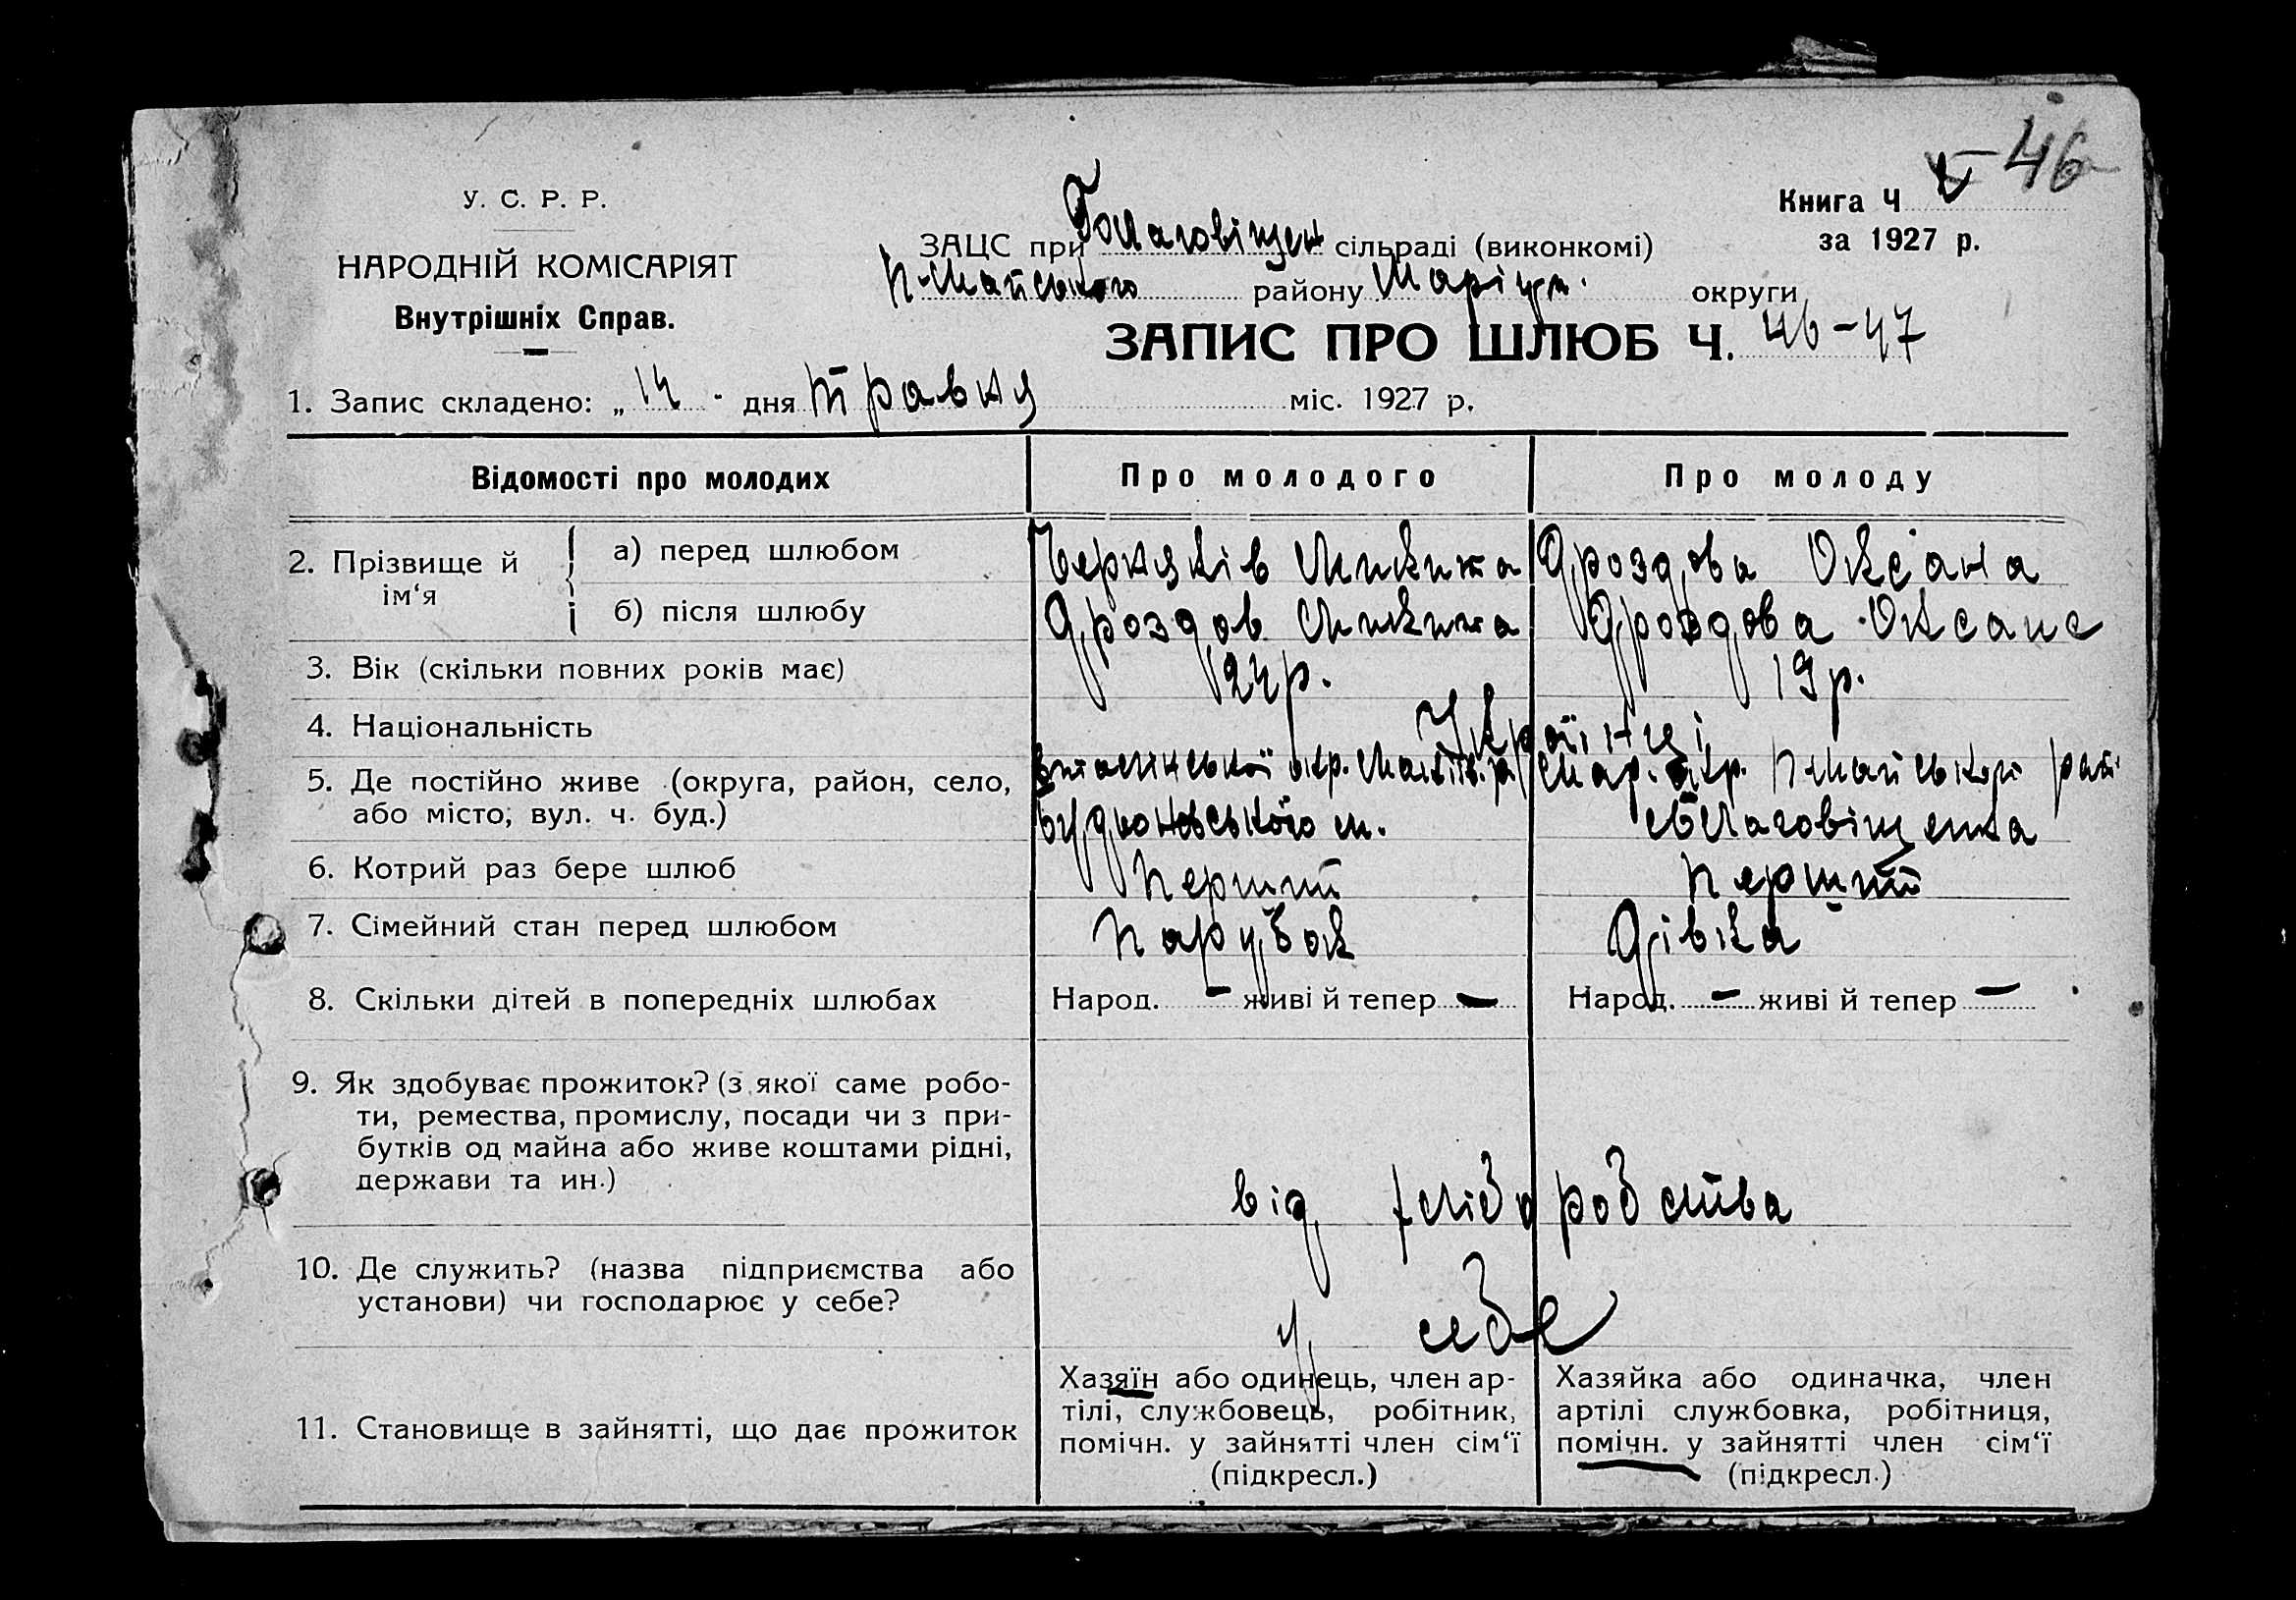 46
У. С. Р. Р.
НАРОДНІЙ КОМІСАРІЯТ
Внутрішніх Справ.
Книга Ч
за 1927 р.
ЗАЦС при Благовіщен сільраді (виконкомі)
П-Майського району Маріуп. округи
ЗАПИС ПРО ШЛЮБ Ч. 46-47
1. Запис складено: „ 14 " дня травня міс. 1927 р.
Відомості про молодих Про молодого Про молоду
2. Прізвище й ім‘я
а) перед шлюбом Черняків Микита Дроздова Оксана
б) після шлюбу Дроздов Микита Дроздова Оксана
3. Вік (скільки повних років має) 24 р. 19 р.
4. Національність Українці
5. Де постійно живе (округа, район, село, окр. Мар. окр. П-Майський рай
або місто, вул. ч. буд.) с Благовіщенка
6. Котрий раз бере шлюб Перший Перший
7. Сімейний стан перед шлюбом Парубок Дівка
8. Скільки дітей в попередніх шлюбах Народ. – живі й тепер – Народ. – живі й тепер –
9. Як здобуває прожиток? (з якої саме робо-
ти, ремества, промислу, посади чи з при-
бутків од майна або живе коштами рідні,
держави та ин.) від хлібородства
10. Де служить? (назва підприємства або
установи) чи господарює у себе? у себе
11. Становище в зайнятті, що дає прожиток
Хазяїн або одинець, член ар-
тілі, службовець, робітник,
помічн. у зайнятті член сім‘ї
(підкресл.)
Хазяйка або одиначка, член
артілі службовка, робітниця,
помічн. у зайнятті член сім‘ї
(підкресл.)